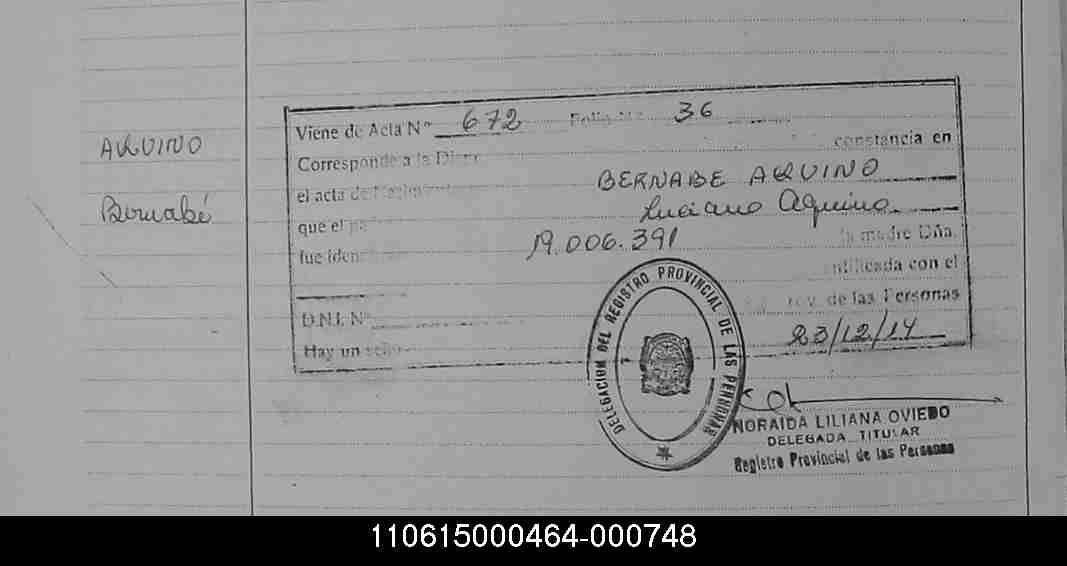 AQUINO
Bernabé
Viene de Acta Nº 672 Folio Nº 36
Corresponde a la constancia en
el acta de BERNABE AQUINO
que el Luciano Aquino
fue 19.006.391 la madre Dña.
con el
D.N.I. Nº de las Personas
Hay un 23/12/14
DELEGACION DEL REGISTRO PROVINCIAL DE LAS PERSONAS
NORAIDA LILIANA OVIEDO
DELEGADA TITULAR
Registro Provincial de las Personas
110615000464-000748